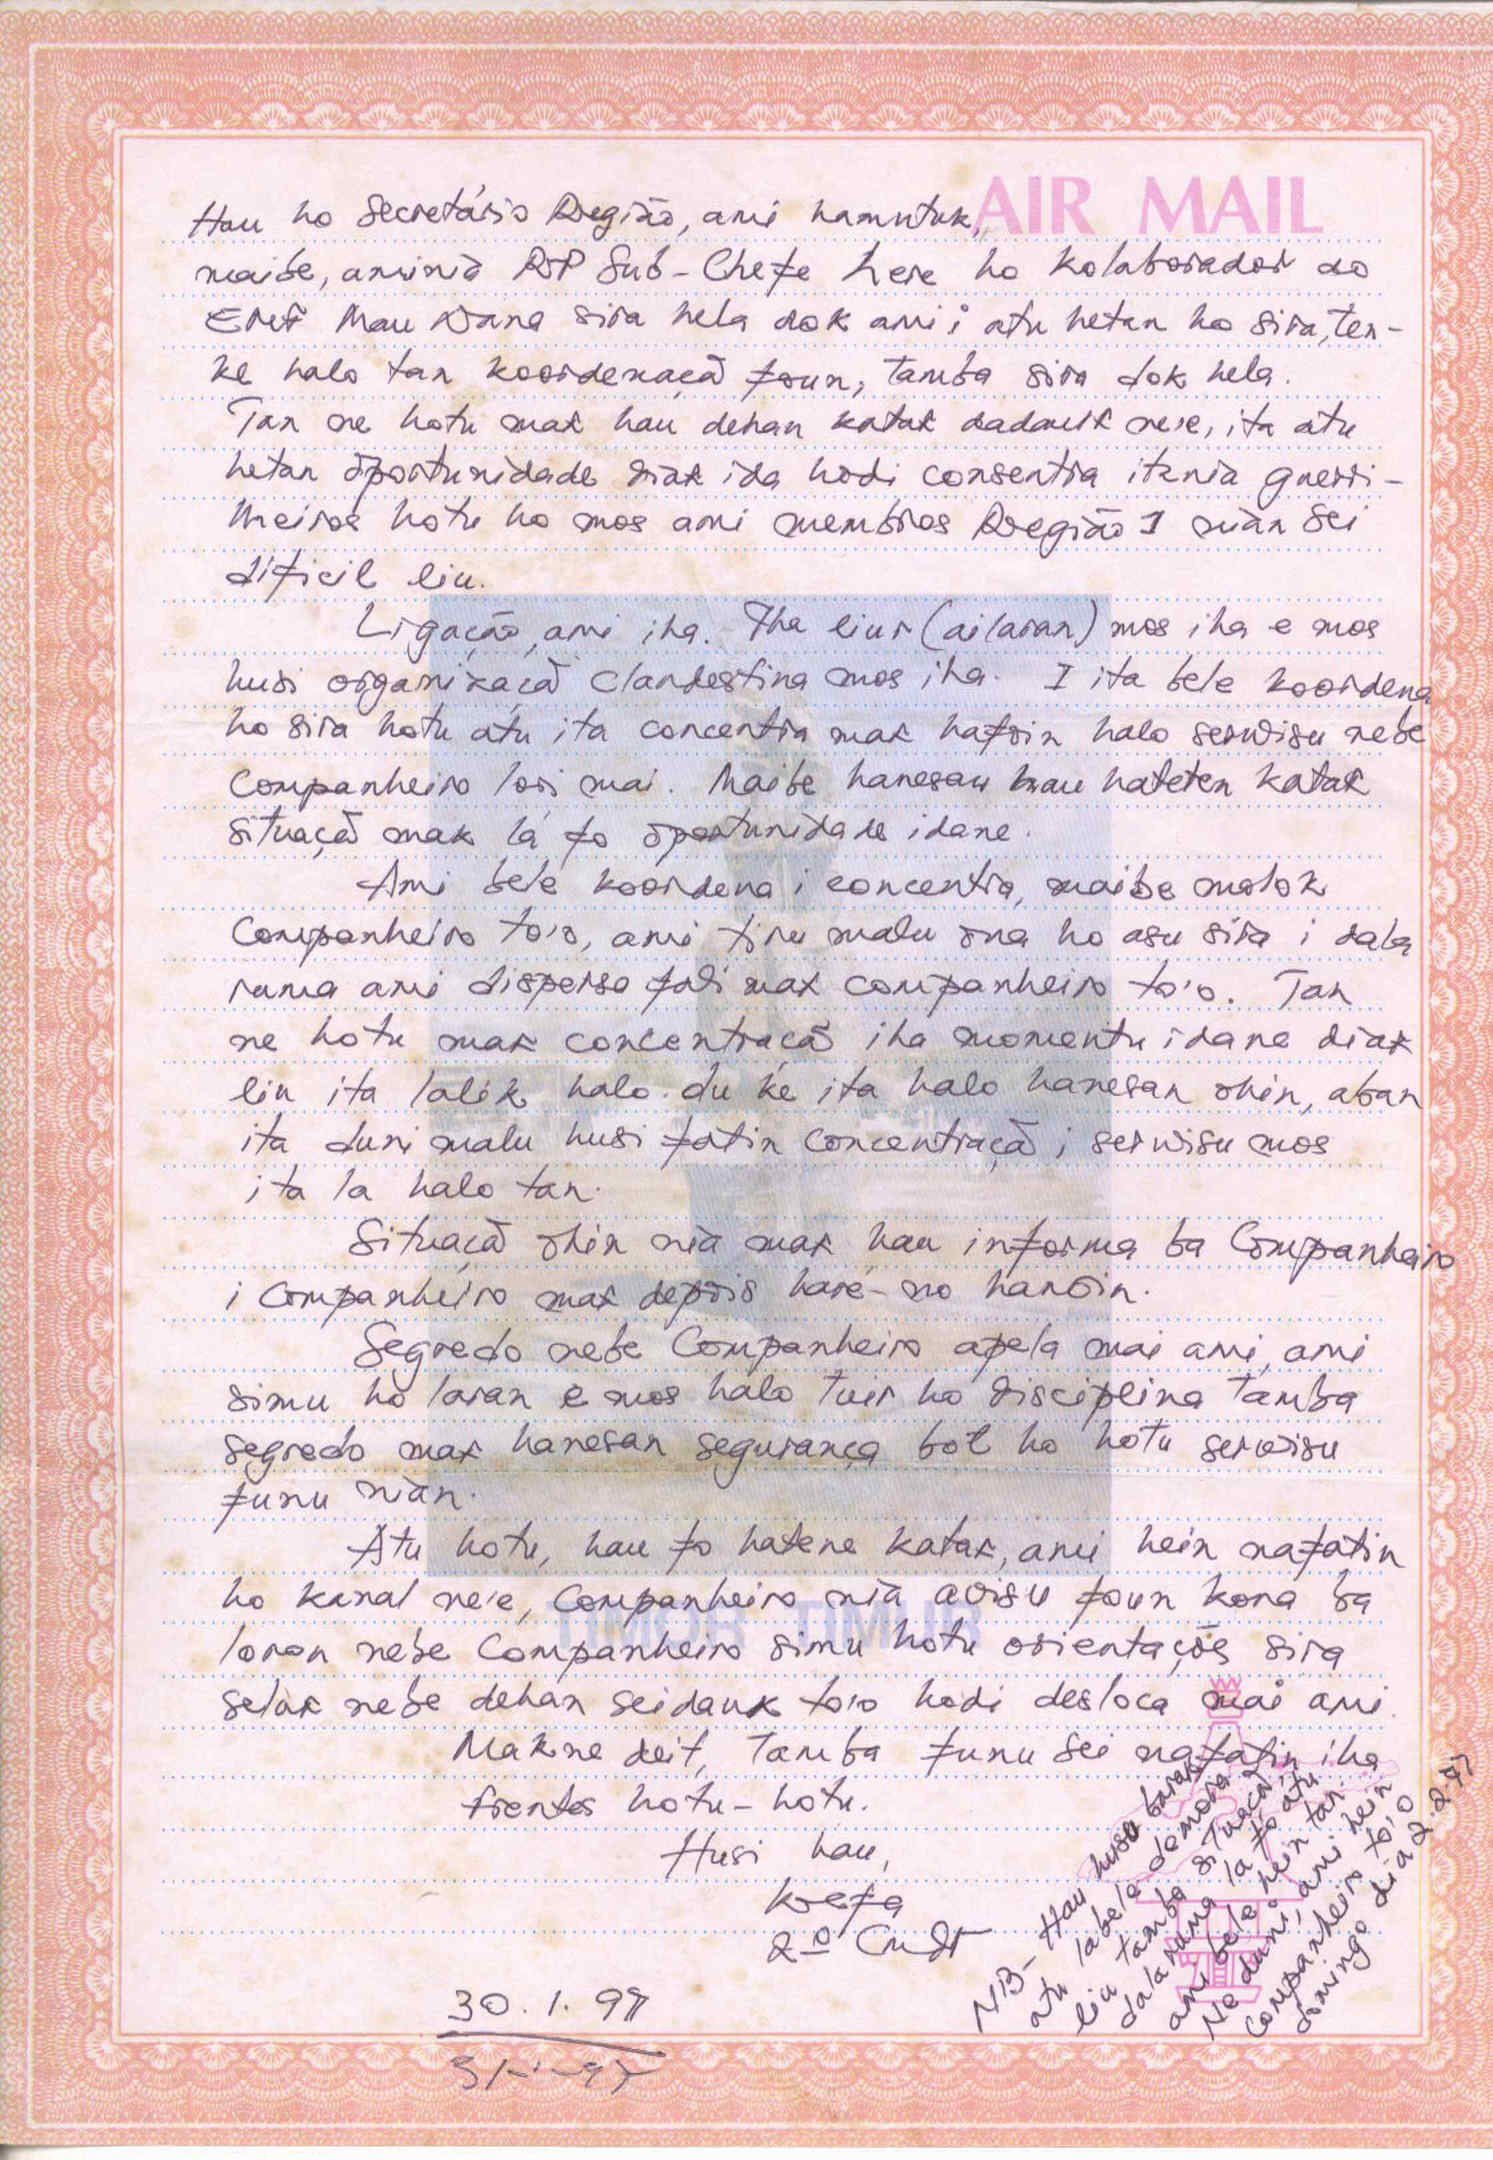 AIR MAIL
Hau ho Secretário Região, ami hamutuk,
maibe, aminia Sub-Chefe Lere ho kolaborador do
EMF Mau Nana sira hela dok ami i atu hetan ho sira, ten-
ke halo tan koordenaçã foun, tamba sira dok hela.
Tan ne hotu mak hau dehan katak dadauk ne'e, ita atu
hetan oportunidade diak ida hodi consentra itania guerri-
lheiros hotu ho mos ami membros Região I niàn sei
dificil liu.
Ligação, ami iha. Iha liur (ailaran) mos iha e mos
husi organizaçã clandestina mos iha. I ita bele koordena
ho sira hotu atu ita concentra mak hafoin halo serwisu nebe
Companheiro lori mai. Maibe hanesan hau hateten katak
situaçã mak la fo oportunidade idane.
Ami bele koordena i concentra, maibe molok
Companheiro to'o, ami tiru malu ona ho asu sira i dala
ruma ami dispersa fali mak companheiro to'o. Tan
ne hotu mak concentraçã iha momentu idane diak
liu ita lalik halo. du ke ita halo hanesan ohin, aban
ita duni malu husi fatin concentraçã i serwisu mos
ita la halo tan.
Situaçã ohin nià mak hau informa ba Companheiro
i Companheiro mak depois haré-no hanoin.
Segredo nebe Companheiro apela mai ami, ami
simu ho laran e mos halo tuir ho disciplina tamba
segredo mak hanesan segurança bot ho hotu serwisu
funu niàn.
Atu hotu, hau fo hatene katak, ami hein nafatin
ho kanal ne'e, Companheiro nià avisu foun kona ba
loron nebe Companheiro simu hotu orientações sira
seluk nebe dehan seidauk to'o hodi desloca mai ami.
TIMOR TIMUR
Makne deit, tamba funu sei nafatin iha
frentes hotu-hotu.
Husi hau,
2º Cmdt
30.1.97
31-1-97
NB- Hau husu barak
atu labele demora
liu tamba situaçã
dala ruma la fo atu
ami bele hein tan.
Ne duni, ami hein
companheiro to'o
domingo dia 2.2.97